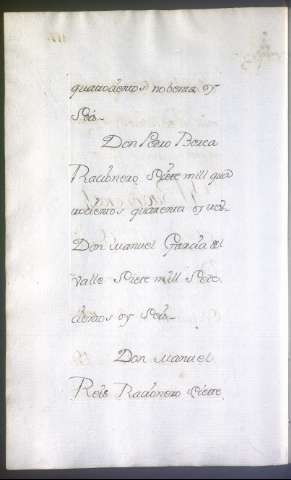 quattrocientos nobenta oy
Seis.
Don Pedro
Racionero Siete mill qua
trocientos quarenta oy
Don Manuel Garcia del
Valle Siete mill Sete
cientos oy Seis.
Don Manuel
Reis Racionero Siete